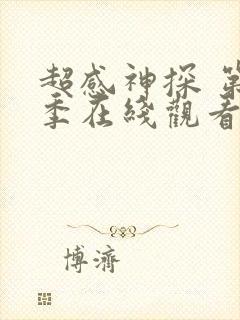 超感神探 第
季在綫觀看
博濟